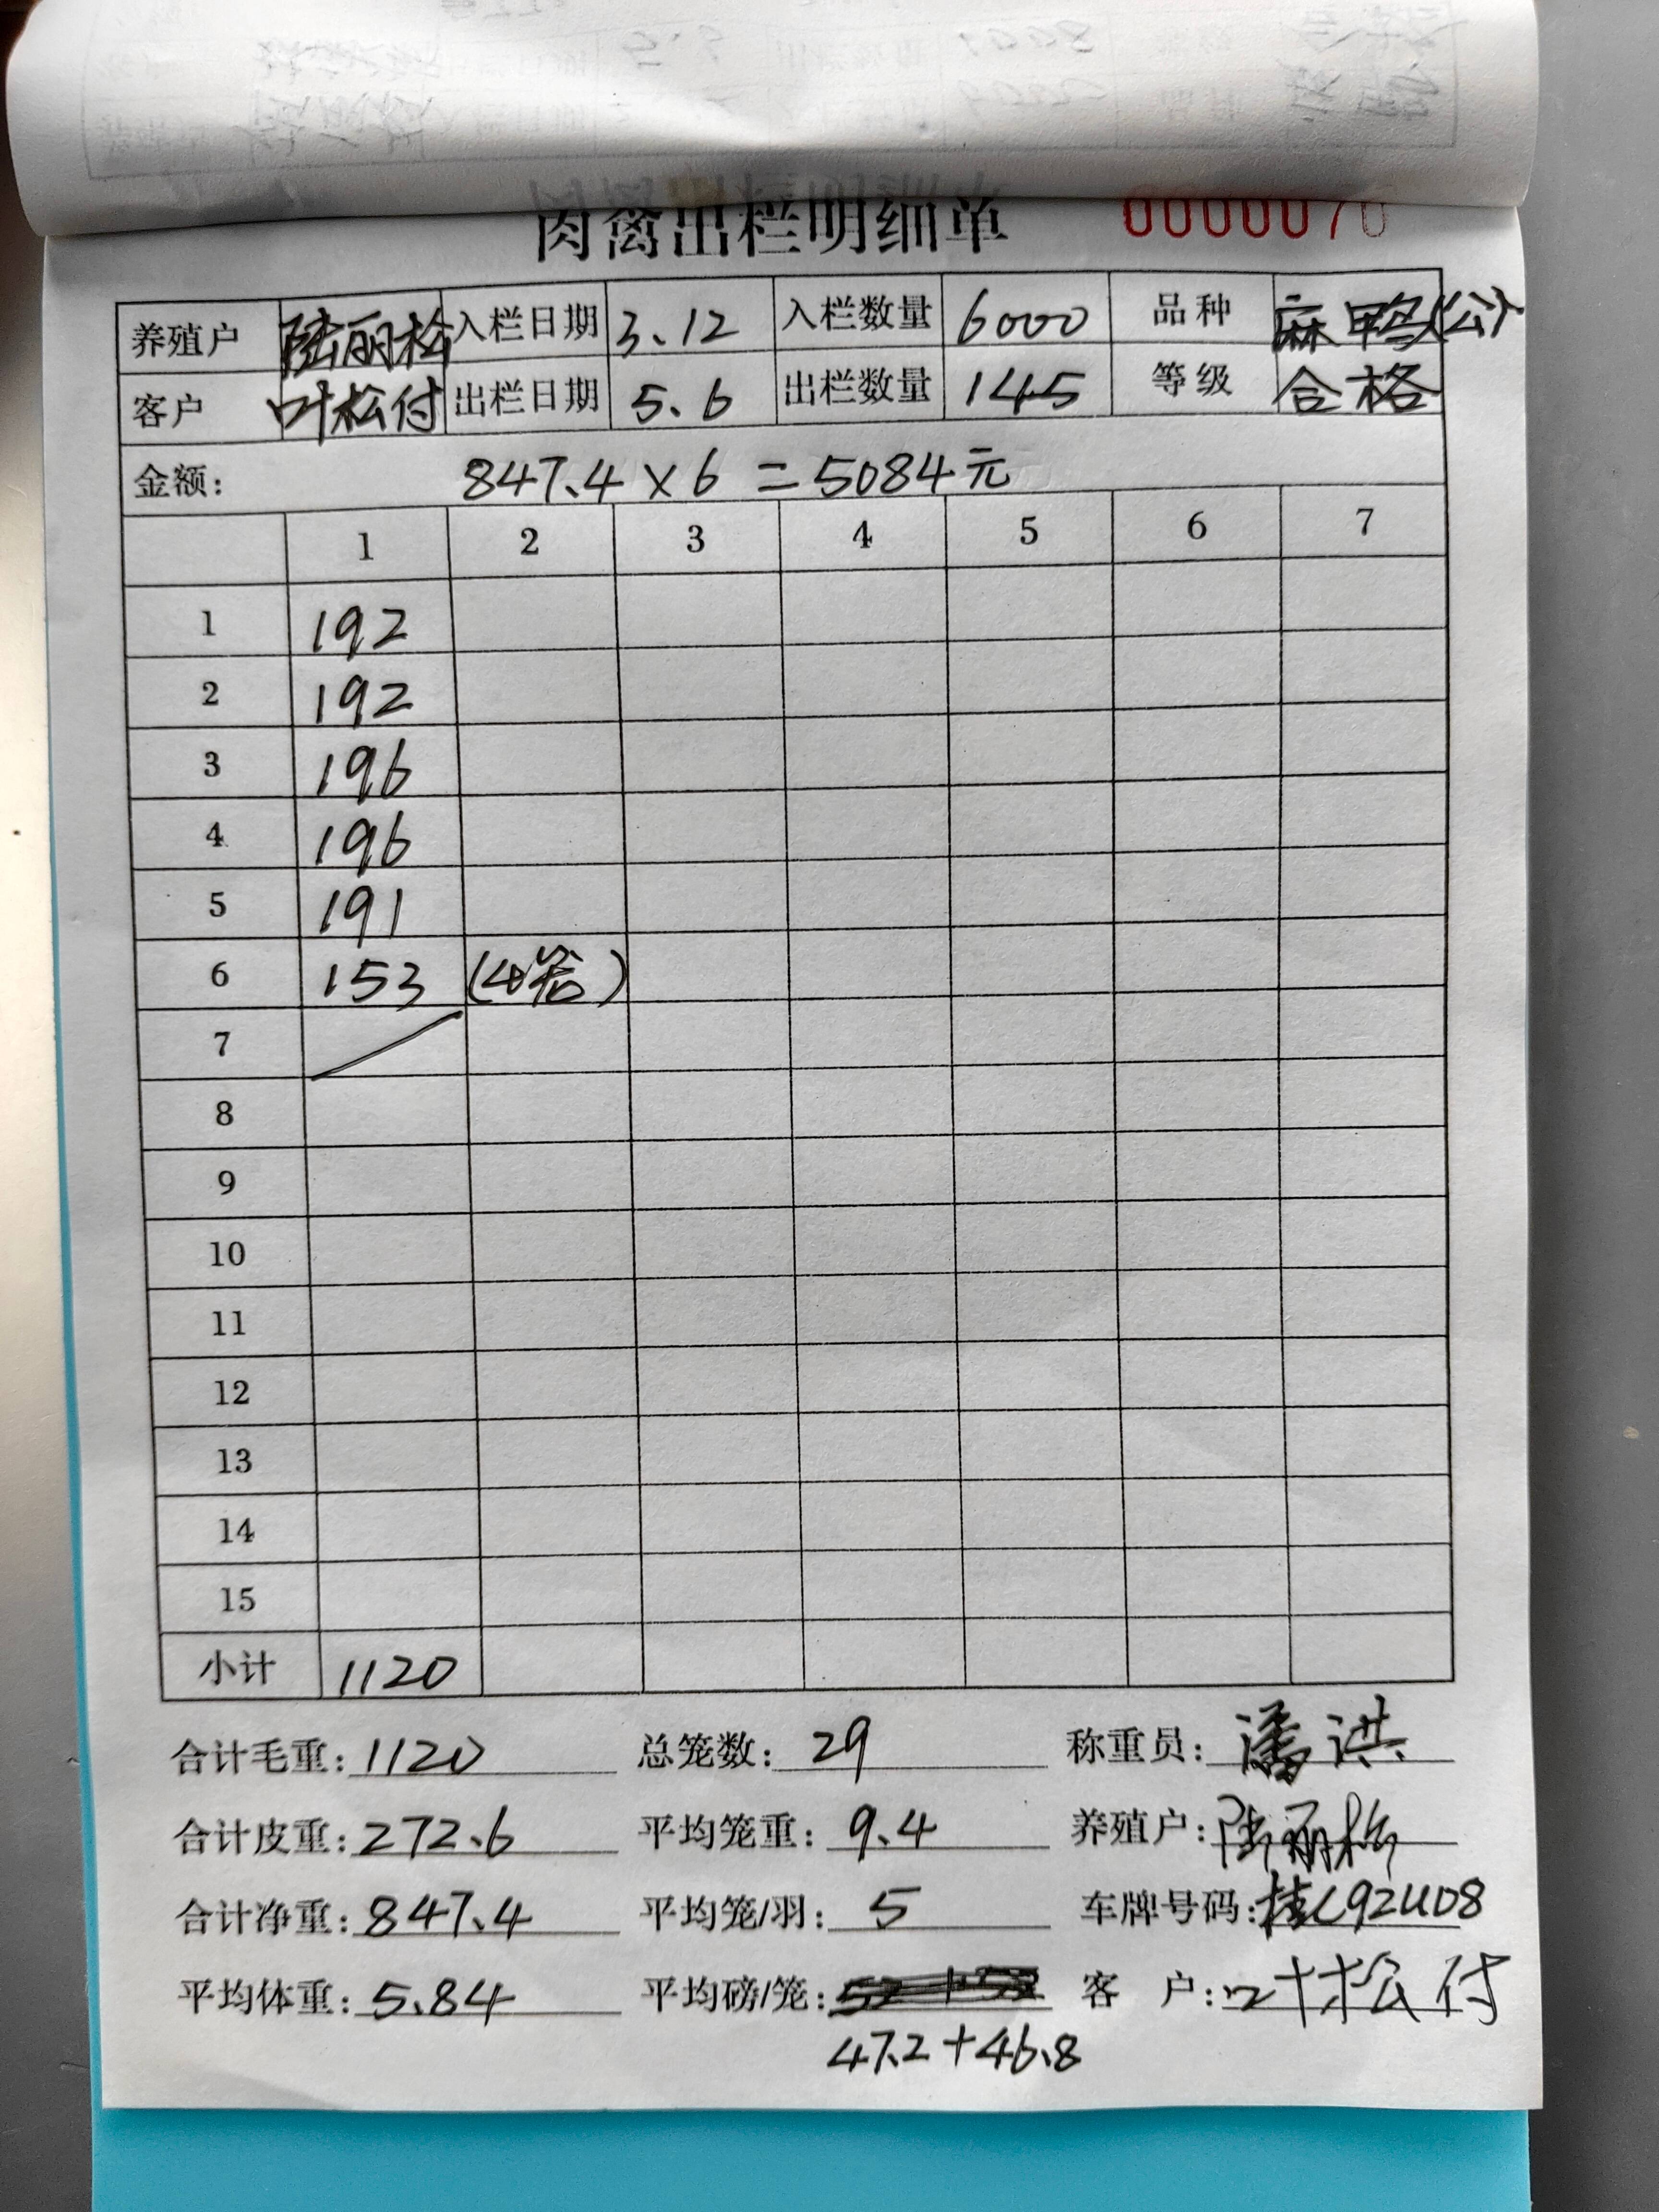 肉禽出栏明细单 0000070
养殖户 陆丽松 入栏日期 3.12 入栏数量 6000 品种 麻鸭(公)
客户 叶松付 出栏日期 5.6 出栏数量 145 等级 合格
金额: 847.4 × 6 = 5084元
1 2 3 4 5 6 7
1 192
2 192
3 196
4 196
5 191
6 153 (4笼)
7
8
9
10
11
12
13
14
15
小计 1120
合计毛重: 1120 总笼数: 29 称重员: 潘洪
合计皮重: 272.6 平均笼重: 9.4 养殖户: 陆丽松
合计净重: 847.4 平均笼/羽: 5 车牌号码: 桂L92U08
平均体重: 5.84 平均磅/笼: 客户: 叶松付
47.2+46.8